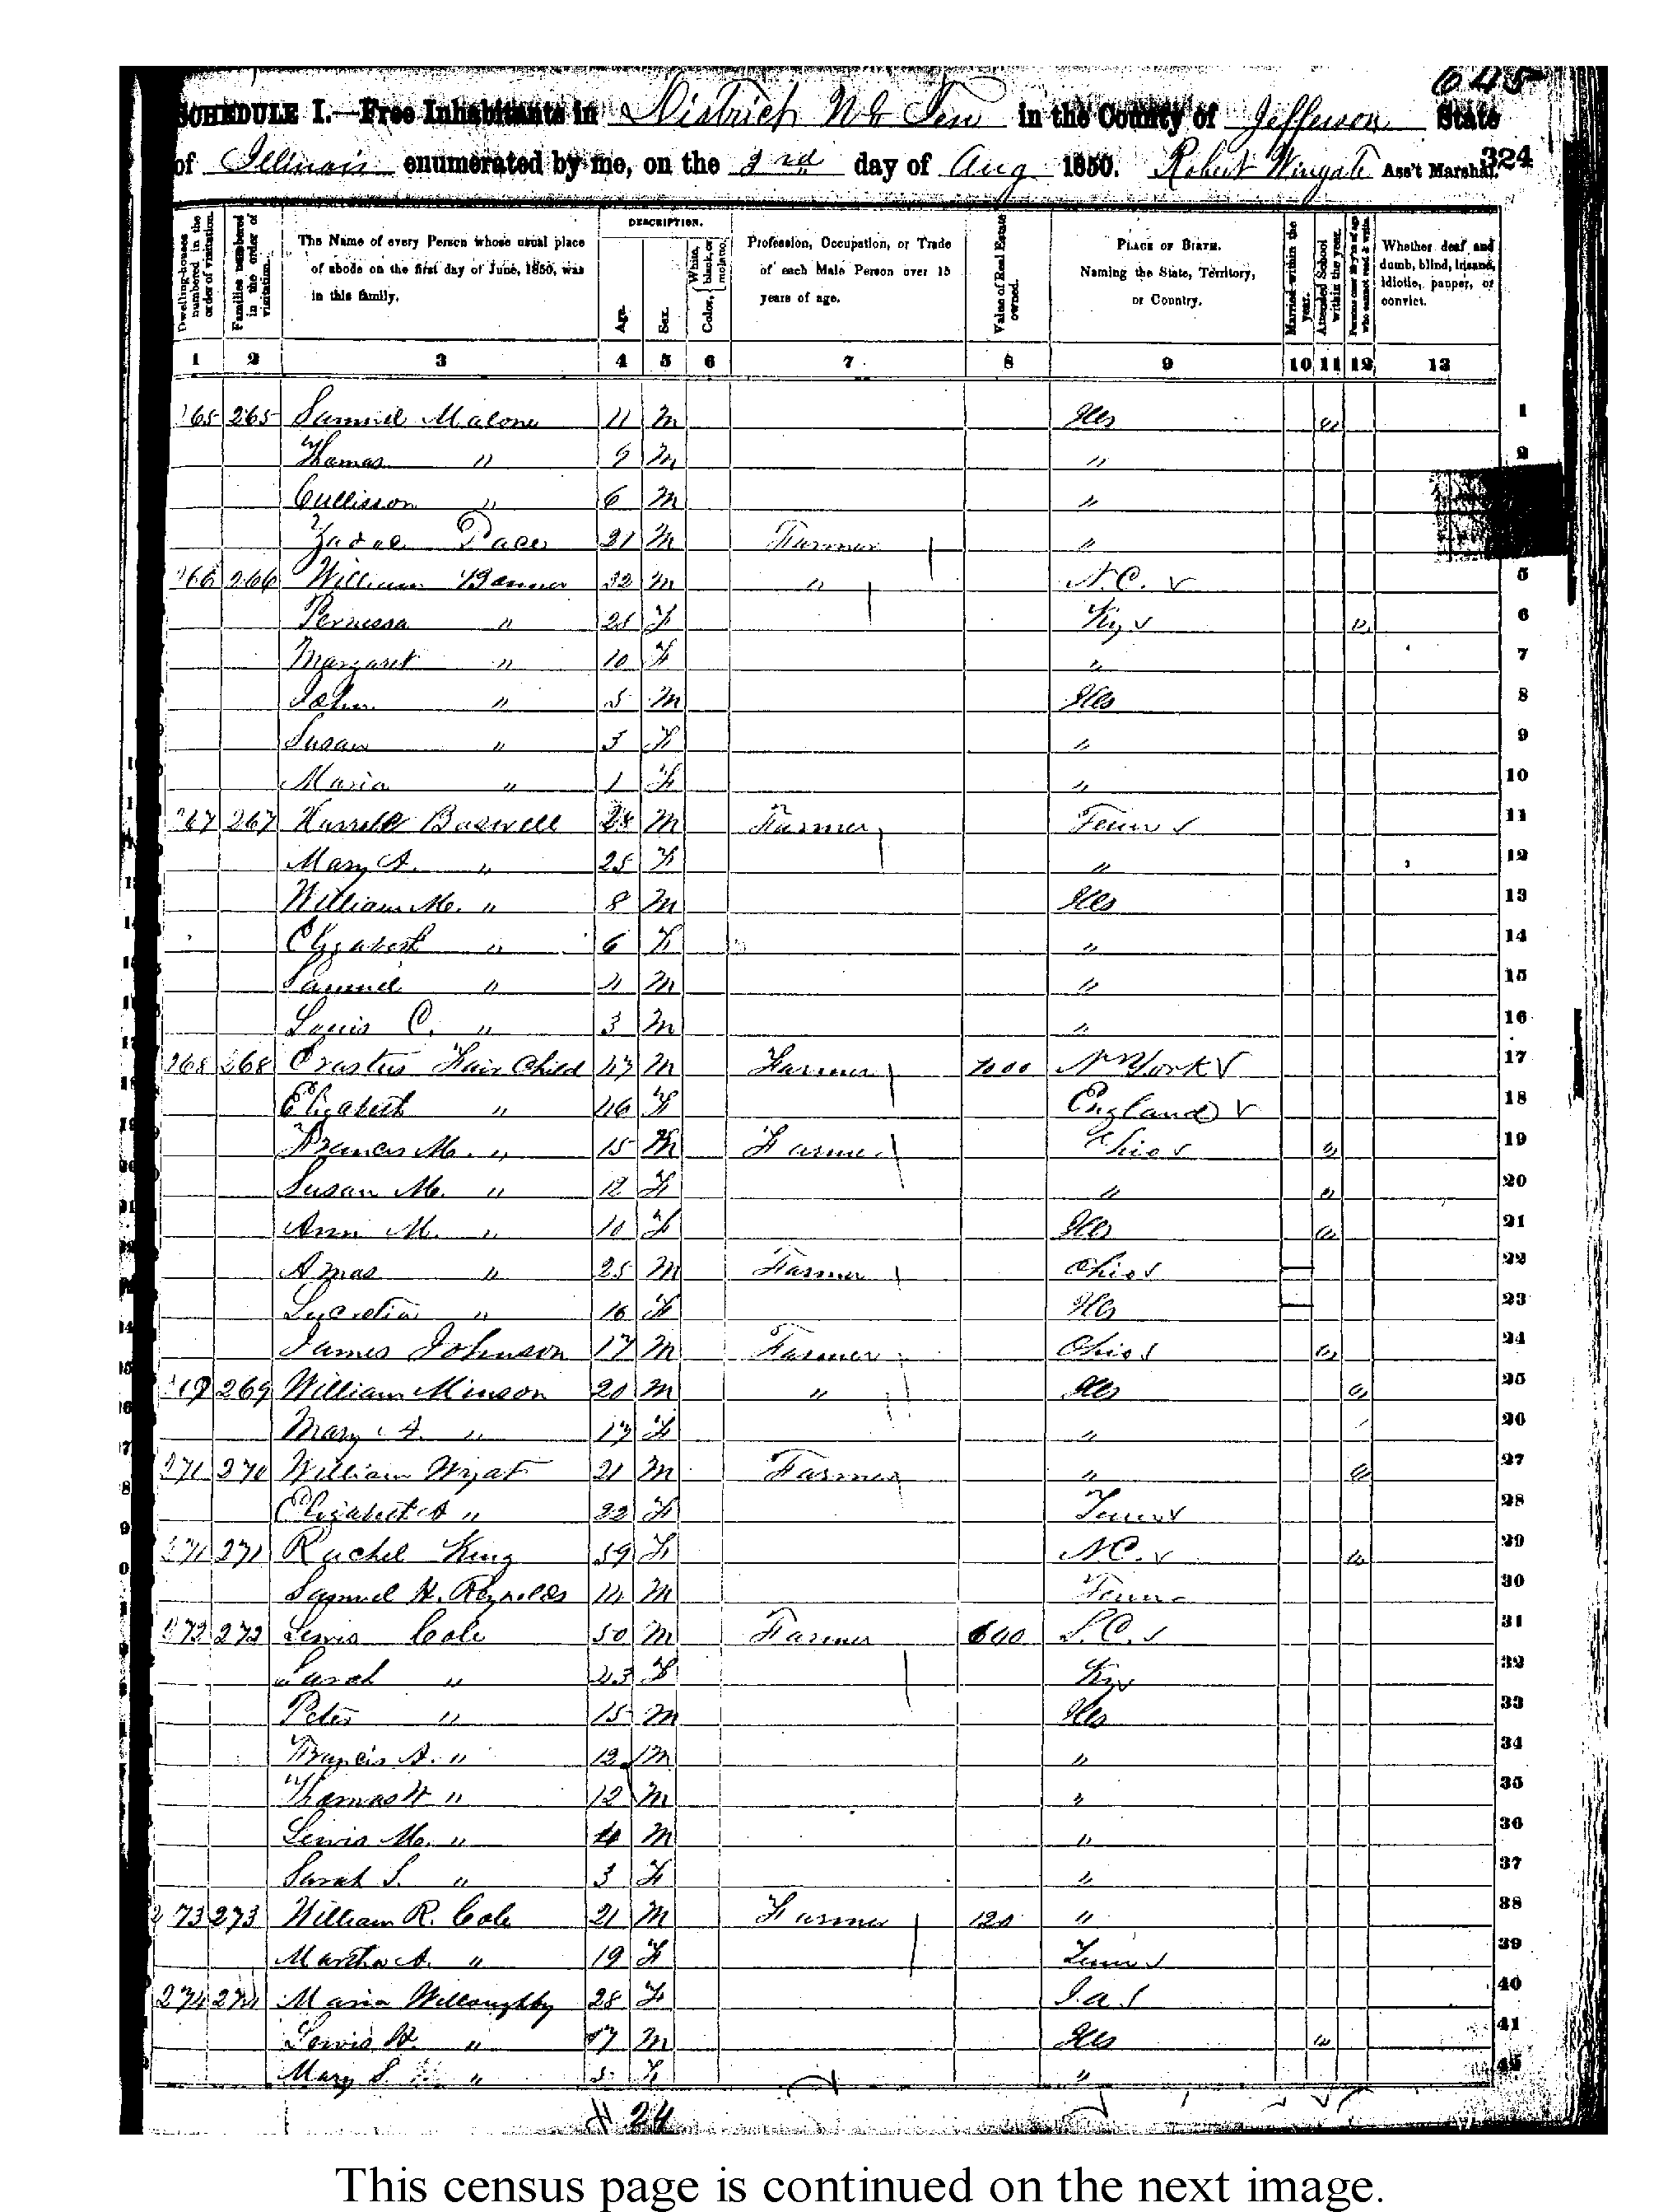 645
SCHEDULE I.—Free Inhabitants in District No Ten in the County of Jefferson State
of Illinois enumerated by me, on the 3rd day of Aug 1850. Robert Wingate Ass't Marshal. 324
Dwelling-houses numbered in the order of visitation.
Families numbered in the order of visitation.
The Name of every Person whose usual place of abode on the first day of June, 1850, was in this family.
DESCRIPTION.
Age.
Sex.
Color, { White, black, or mulatto.
Profession, Occupation, or Trade of each Male Person over 15 years of age.
Value of Real Estate owned.
PLACE OF BIRTH. Naming the State, Territory, or Country.
Married within the year.
Attended School within the year.
Persons over 20 y'rs of age who cannot read & write.
Whether deaf and dumb, blind, insane, idiotic, pauper, or convict.
1 2 3 4 5 6 7 8 9 10 11 12 13
265 265 Samuel Malone 11 M Ills 1
Thomas " 9 M " 2
Cullisson " 6 M "
Zadoc Pace 21 M Farmer "
266 266 William 32 M " N.C. 5
" 25 F Ky 6
Margaret " 10 F " 7
John " 5 M Ills 8
Susan " 3 F " 9
Maria " 1 F " 10
267 267 Harrell Baswell 28 M Farmer Tenn 11
Mary A. " 25 F " 12
William M. " 8 M Ills 13
Elizabeth " 6 F " 14
Samuel " 4 M " 15
Louis C. " 3 M " 16
268 268 Orastus Fair Child 47 M Farmer 1000 N York 17
Elizabeth " 46 F England 18
Francis M. " 15 M Farmer Ohio 19
Susan M. " 12 F " 20
Ann M. " 10 F Ills 21
Amas " 25 M Farmer Ohio 22
Lucretia " 16 F Ills 23
James Johnson 17 M Farmer Ohio 24
269 William Minson 20 M " Ills 25
Mary A. " 17 F " 26
271 270 William Wyat 21 M Farmer " 27
Elizabeth A " 22 F Tenn 28
271 271 Rachel King 59 F N.C. 29
Samuel H. Reynolds 14 M Tenn 30
272 272 Lewis Cole 50 M Farmer 600 S.C. 31
Sarah " 43 F Ky 32
Peter " 15 M Ills 33
Francis A. " 12 M " 34
Thomas H " 12 M " 35
Lewis M. " 4 M " 36
Sarah S. " 3 F " 37
273 273 William R. Cole 21 M Farmer 120 " 38
Martha A. " 19 F Tenn 39
274 274 Maria Willoughby 28 F I.a. 40
Lewis H. " 7 M Ills 41
Mary S. " 5 F " 42
24
This census page is continued on the next image.